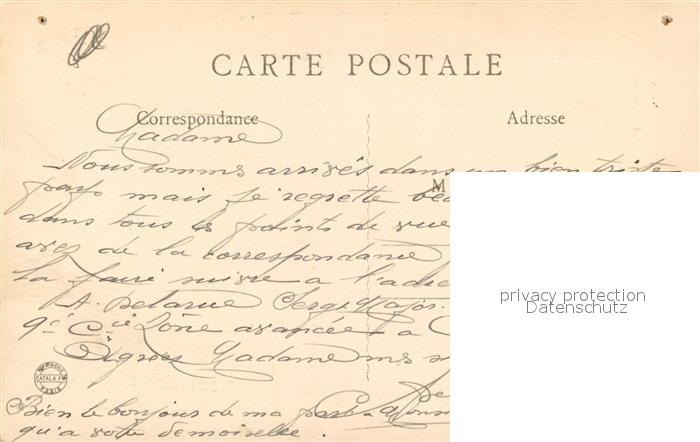 CARTE POSTALE
Correspondance
Adresse
Madame
Nous sommes arrivés dans un bien triste
pays mais je regrette
M
dans tous les points de vue
avez de la correspondance
la faire suivre a l'adre
A. Delarue Sergt Major
9e Cie Zône avancée a
Agréez Madame mes
Bien le bonjour de ma part a
qu'a votre demoiselle.
CATALA FRES
PARIS
privacy protection
Datenschutz